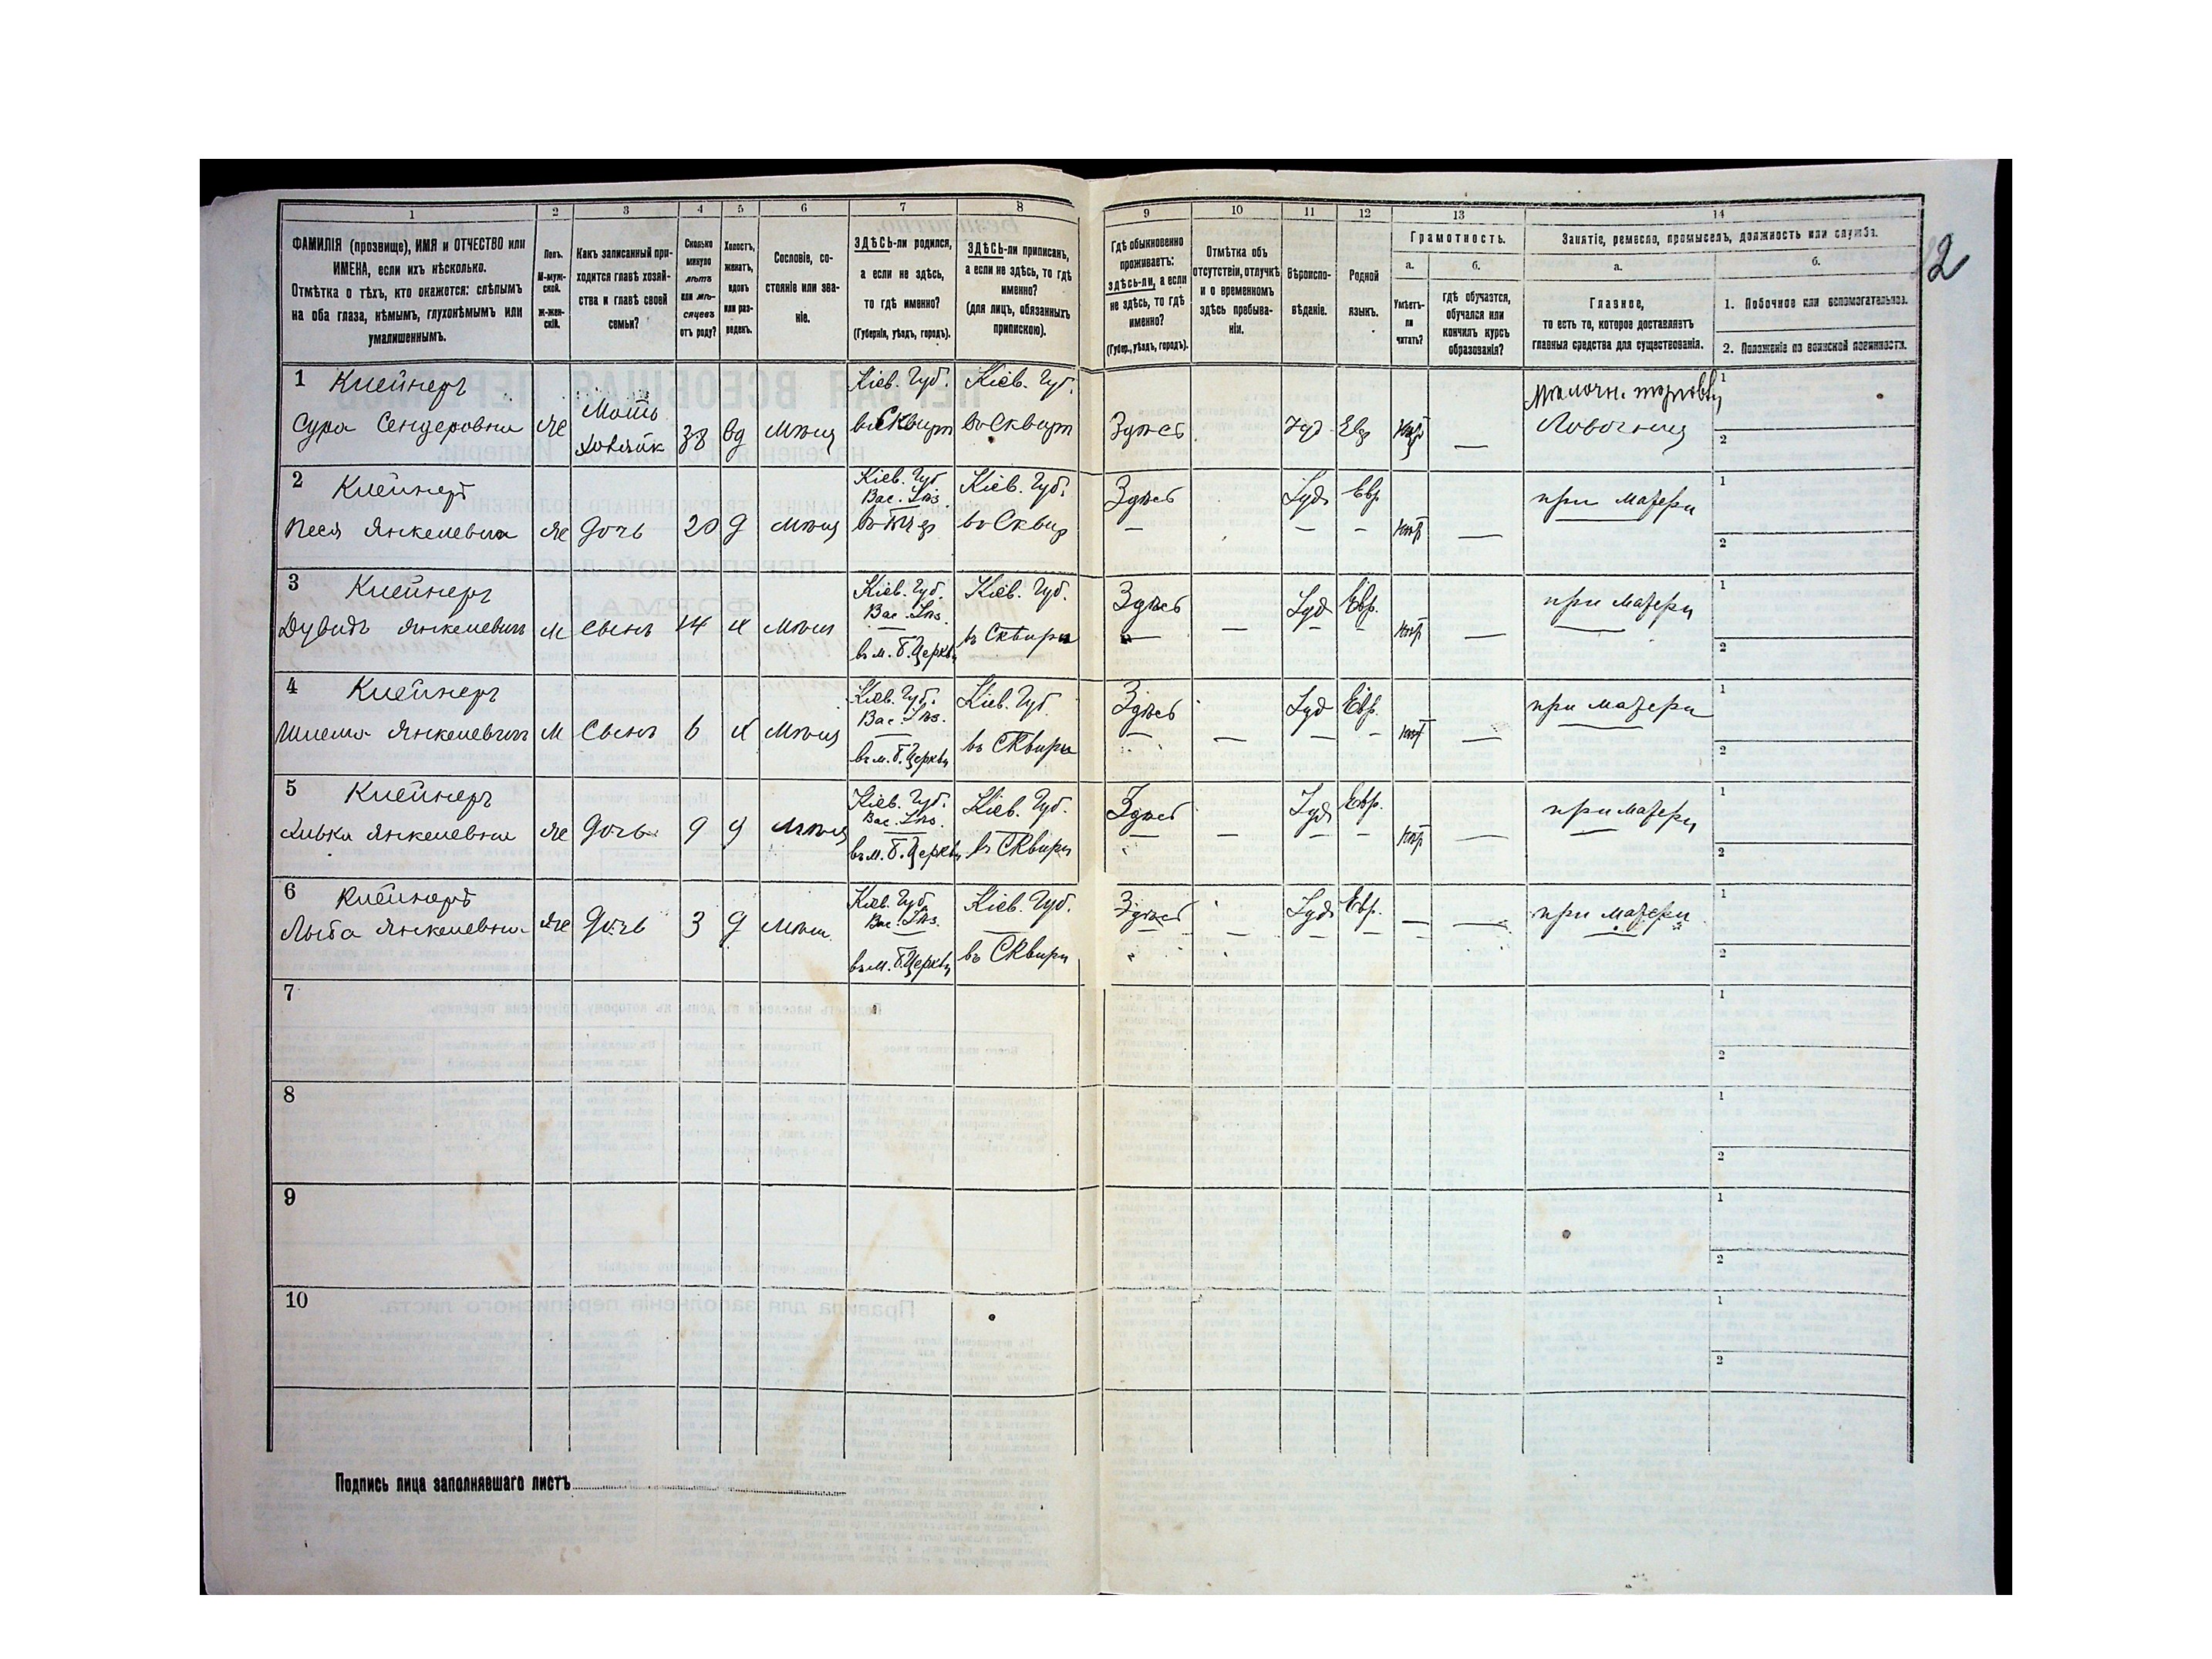 1 2 3 4 5 6 7 8 9 10 11 12 13 14
ФАМИЛІЯ (прозвище), ИМЯ и ОТЧЕСТВО или
ИМЕНА, если ихъ нѣсколько.
Отмѣтка о тѣхъ, кто окажется: слѣпымъ
на оба глаза, нѣмымъ, глухонѣмымъ или
умалишеннымъ.
Полъ.
М-муж-
ской.
Ж-жен-
скій.
Какъ записанный при-
ходится главѣ хозяй-
ства и главѣ своей
семьи?
Сколько
минуло
лѣтъ
или мѣ-
сяцевъ
отъ роду?
Холостъ,
женатъ,
вдовъ
или раз-
веденъ.
Сословіе, со-
стояніе или зва-
ніе.
ЗДѢСЬ-ли родился,
а если не здѣсь,
то гдѣ именно?
(Губернія, уѣздъ, городъ).
ЗДѢСЬ-ли приписанъ,
а если не здѣсь, то гдѣ
именно?
(для лицъ, обязанныхъ
припискою).
Гдѣ обыкновенно
проживаетъ:
здѣсь-ли, а если
не здѣсь, то гдѣ
именно?
(Губер., уѣздъ, городъ).
Отмѣтка объ
отсутствіи, отлучкѣ
и о временномъ
здѣсь пребыва-
ніи.
Вѣроиспо-
вѣданіе.
Родной
языкъ.
Грамотность.
а.
Умѣетъ-
ли
читать?
б.
гдѣ обучается,
обучался или
кончилъ курсъ
образованія?
Занятіе, ремесло, промыселъ, должность или служба.
а.
Главное,
то есть то, которое доставляетъ
главныя средства для существованія.
б.
1. Побочное или вспомогательное.
2. Положеніе по воинской повинности.
12
1 Клейнеръ Кіев. Губ. Кіев. Губ. 1
Сура Сендеровна Же Мать Хозяйк 38 вд Мѣщ въ Сквирѣ въ Сквирѣ Здѣсь Іуд Евр — 2
2 Клейнеръ Кіев. Губ. Вас. Кіев. Губ. Здѣсь Іуд Евр при матери 1
Песя Янкелевна Же дочь 20 д Мѣщ въ Сквир — — — нѣт — 2
3 Клейнеръ Кіев. Губ. Вас. Кіев. Губ. Здѣсь Іуд Евр. при матери 1
Дувидъ Янкелевичъ М Сынъ 14 х Мѣщ въ м. Б. Церкви въ Сквирѣ — — — — нѣт — 2
4 Клейнеръ Кіев. Губ. Вас. Кіев. Губ Здѣсь Іуд Евр. при матери 1
Шлема Янкелевичъ М Сынъ 6 х Мѣщ въ м. Б. Церкви въ Сквирѣ — — — — нѣт — 2
5 Клейнеръ Кіев. Губ. Вас. Кіев. Губ. Здѣсь Іуд Евр. при матери 1
Янкелевна Же дочь 9 д Мѣщ въ м. Б. Церкви въ Сквирѣ — — — — нѣт — 2
6 Клейнеръ Кіев. Губ. Вас. Кіев. Губ. Здѣсь Іуд Евр. при матери 1
Янкелевна Же дочь 3 д Мѣщ въ м. Б. Церкви въ Сквирѣ — — — — — — 2
7 1
2
8 1
2
9 1
2
10 1
2
Подпись лица заполнявшаго листъ